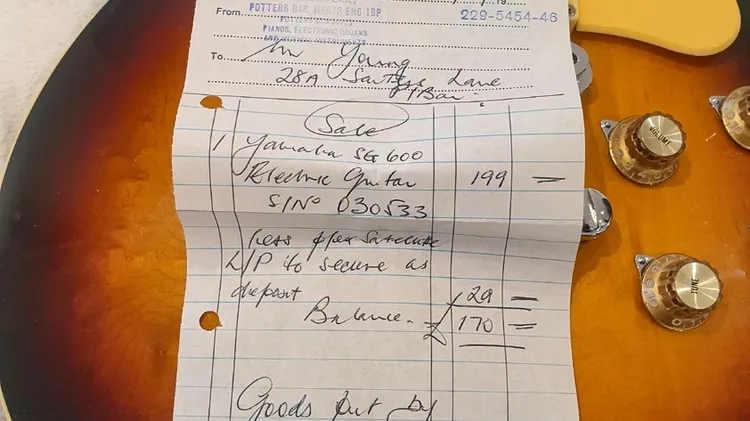 From POTTERS BAR, HERTS EN6 1BP
229-5454-46
PIANOS, ELECTRONIC ORGANS
To Mr Young
28A Lane
P/Bar
Sale
1 Yamaha SG 600
Electric Guitar 199 =
S/No 030533
Less p/ex Satellite
L/P to secure as
deposit 29 =
Balance. £ 170 =
Goods put by
VOLUME
TONE